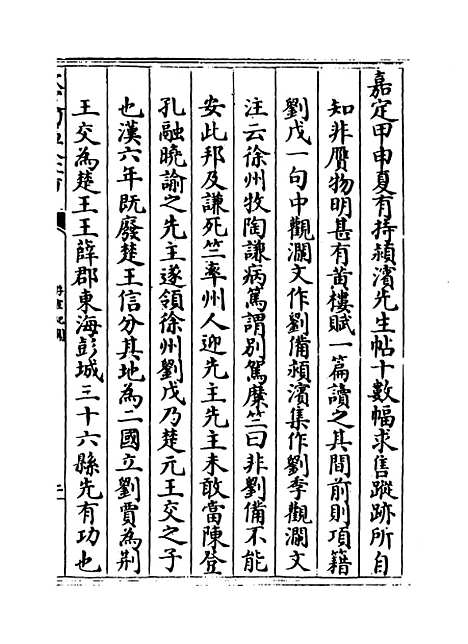 嘉定甲申夏有持潁濱先生帖十數幅求售蹤跡所自
知非贋物明甚有黃樓賦一篇讀之其間前則項籍
劉戊一句中觀瀾文作劉備潁濱集作劉季觀瀾文
注云徐州牧陶謙病篤謂別駕麋竺曰非劉備不能
安此邦及謙死竺率州人迎先主先主未敢當陳登
孔融曉諭之先主遂領徐州劉戊乃楚元王交之子
也漢六年既廢楚王信分其地為二國立劉賈為荆
王交為楚王王薛郡東海彭城三十六縣先有功也